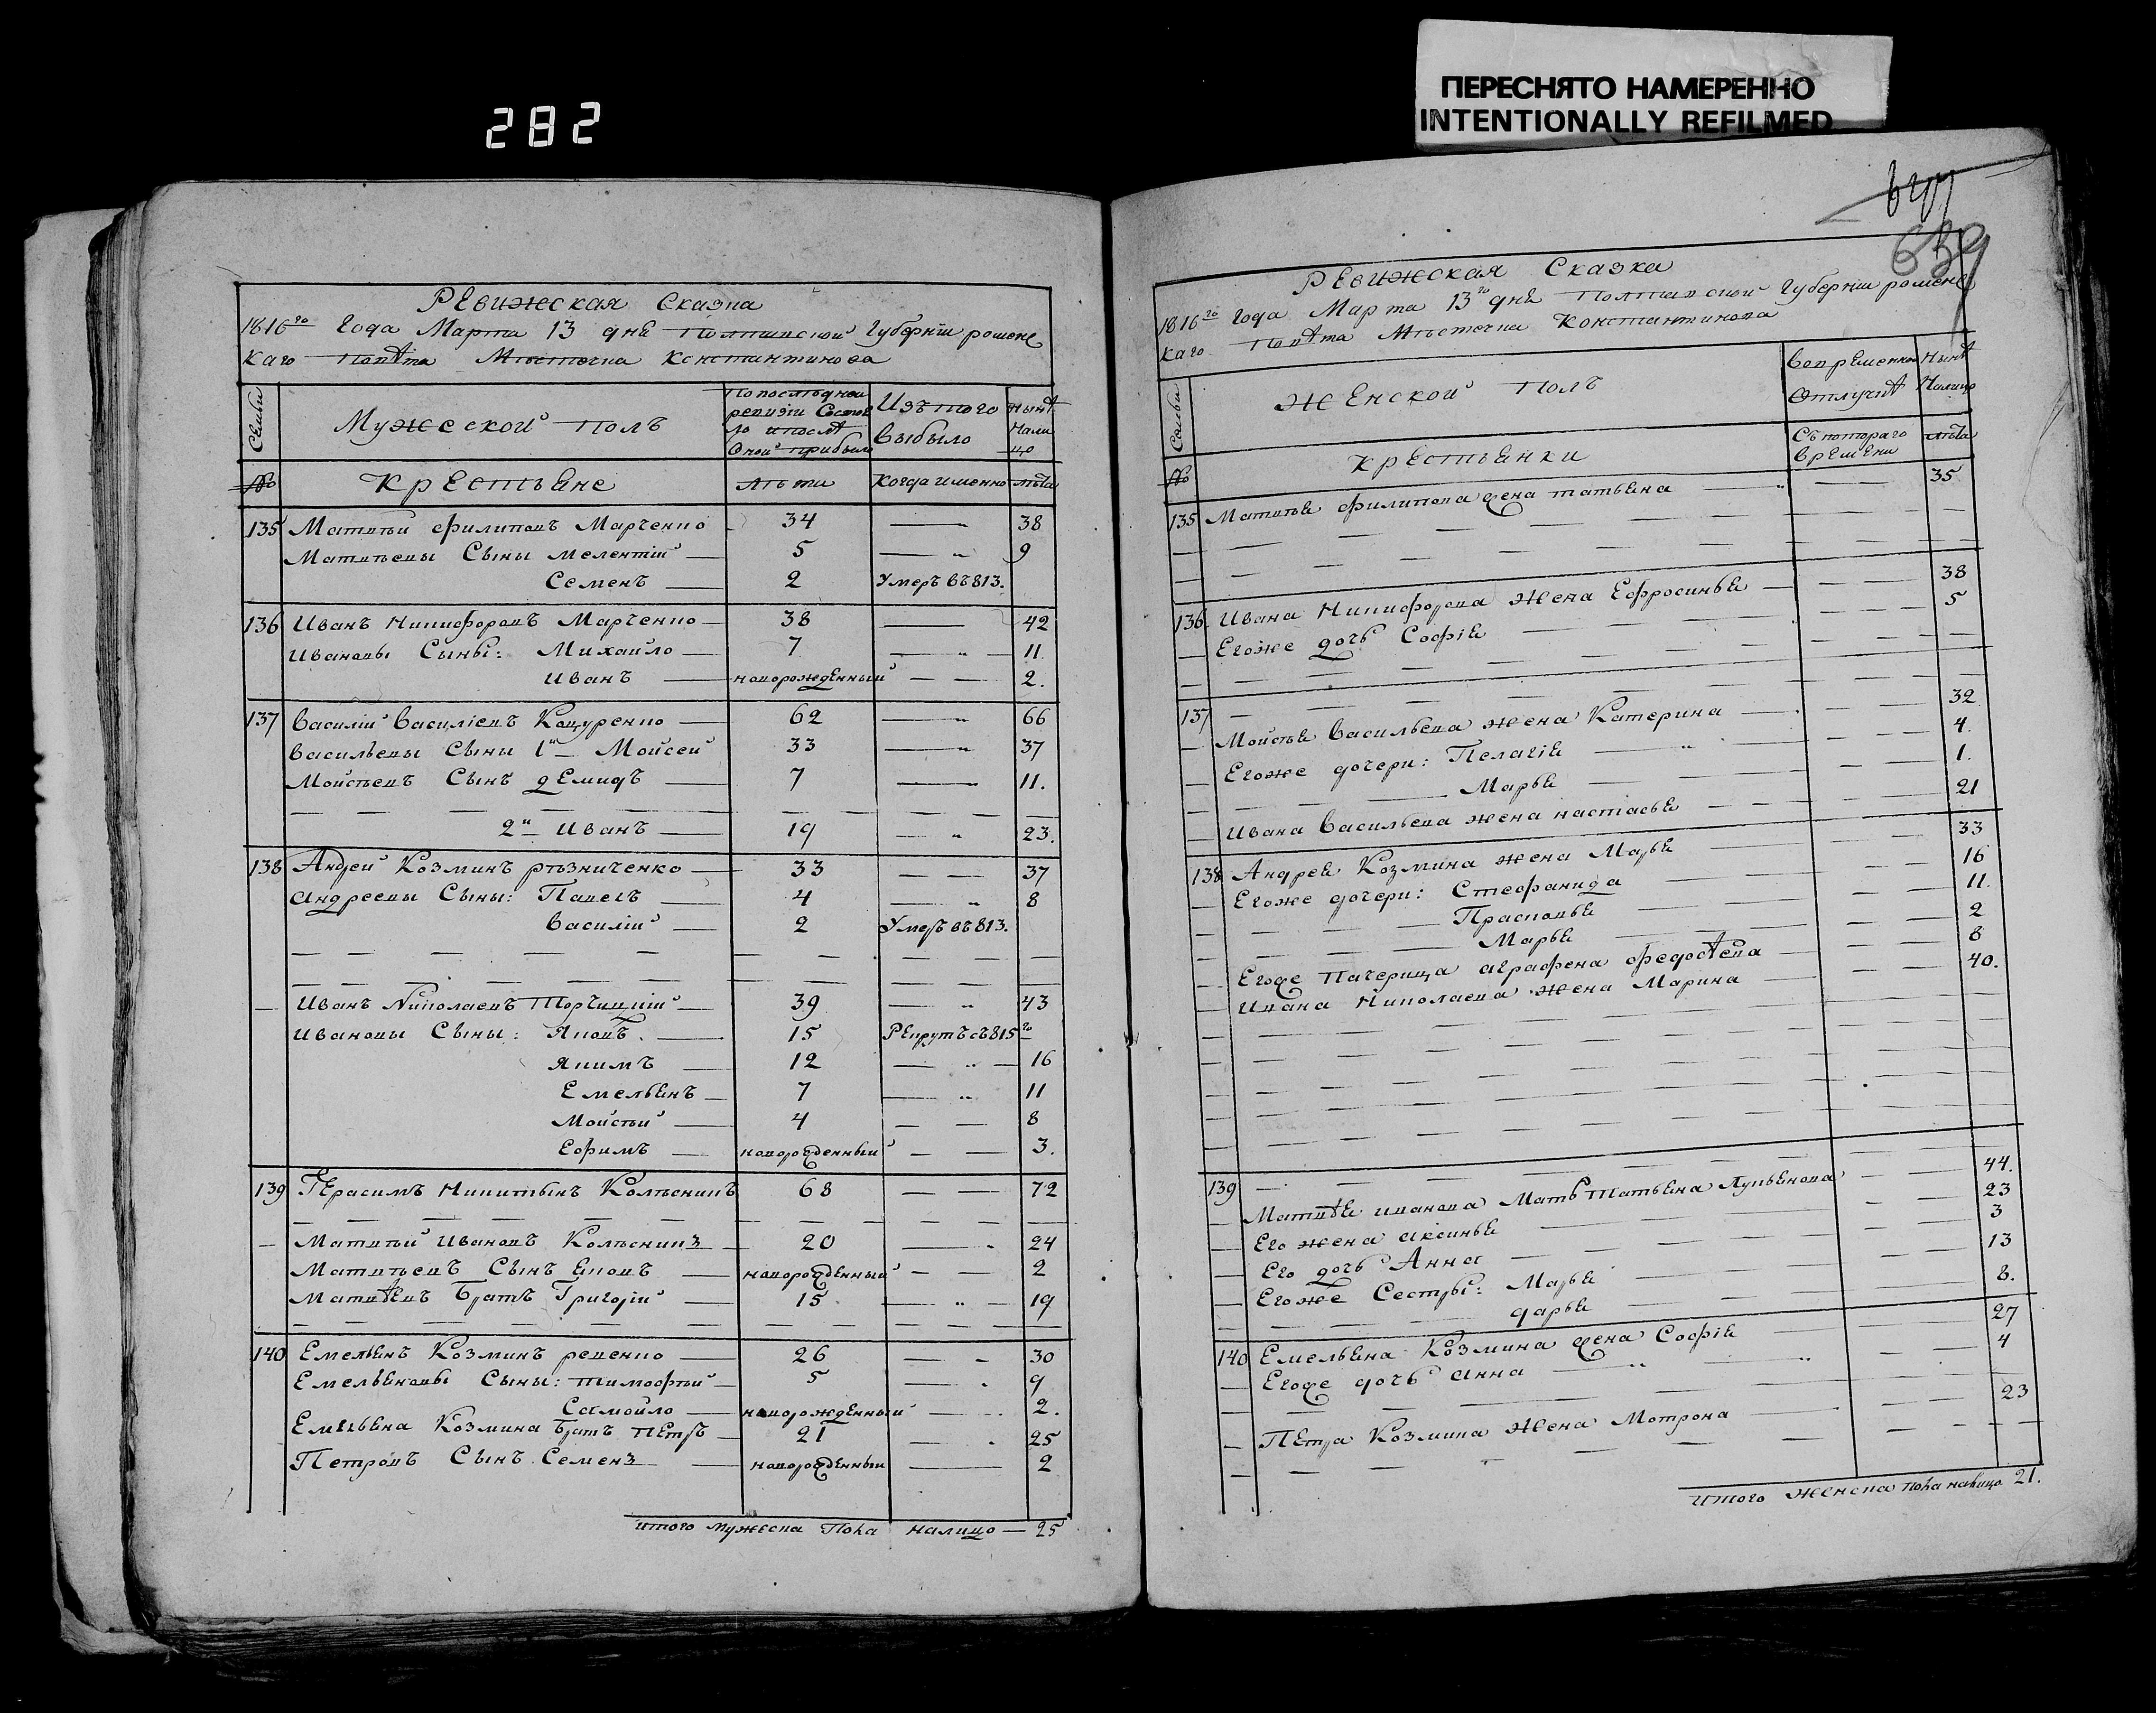 282
ПЕРЕСНЯТО НАМЕРЕННО
INTENTIONALLY REFILMED
639
РЕвижская Сказка
1816го Года Марта 13 днѣ Полтавской Губернїи роменс
каго повѣта Мѣстечка Константинова
Семьи
Мужеской полъ
По последней
ревизїи Состоя
ло и послѣ
Оной прибыло
Изъ того
Выбыло
нынѣ
Нали
цо
№ Крестьяне лѣты Когда именно лѣта
135 Матвѣй филиповъ Марченко 34 38
Матвѣевы Сыны Мелентїй 5 9
Семенъ 2 Умеръ въ 813.
136 Иванъ Никифоровъ Марченко 38 42
Ивановы Сыны: Михайло 7 11.
Иванъ новорожденный 2.
137 Василїй Василїевъ Кацуренко 62 66
Васильевы Сыны 1й Мойсей 33 37
Мойсѣевъ Сынъ дЕмидъ 7 11.
2й Иванъ 19 23.
138 Андрей Козминъ рѣзниченко 33 37
Андреевы Сыны: Павелъ 4 8
Василїй 2 Умеръ въ 813.
Иванъ Николаевъ Торчицкїй 39 43
Ивановы Сыны: Яковъ. 15 РЕкрутъ съ 815го
Якимъ 12 16
Емельянъ 7 11
Мойсѣй 4 8
Ефимъ новорожденный 3.
139 ГЕрасимъ Никитынъ Колѣсникъ 68 72
Матвѣй Ивановъ Колѣсникъ 20 24
Матвѣевъ Сынъ Яковъ новорожденный 2
Матвѣевъ Братъ Григорїй 15 19
140 Емельянъ Козминъ ревенко 26 30
Емельяновы Сыны: тимофѣй 5 9
Самойло новорожденный 2.
Емельяна Козмина братъ пЕтръ 21 25
Петровъ Сынъ Семенъ новорожденный 2
итого мужеска Пола налицо — 25
РЕвижская Сказка
1816го Года Марта 13го днѣ Полтавской Губернїи роменс
каго повѣта Мѣстечка Константинова
Семьи
ЖЕнской полъ
Во временной
Отлучкѣ
Нынѣ
Налицо
№ КрЕстьянки
Съ котораго
врЕмЕни
лѣта
135 Матвѣя филипова жена татьяна 35
136. Ивана Никифорова Жена Ефросинья 38
Егоже дочь Софїя 5
137
Мойсѣя Васильева жена Катерина 32
Егоже дочери: Пелагїя 4.
Марья 1.
Ивана Васильева жена настасья 21
138 Андрея Козмина жена Марья 33
Егоже дочери: Стефанида 16
Прасковья 11.
Марья 2
Егоже Пачерица аграфена федосѣева 8
Ивана Николаева жена Марина 40.
139
Матвѣя иванова Мать татьяна Лукьянова 44.
Его жена аксинья 23
Его дочь Анна 3
Егоже Сестры: Марья 13
дарья 8.
140 Емельяна Козмина жена Софїя 27
Егоже дочь Анна 4
ПЕтра Козмина жена Мотрона 23
итого женска Пола налицо 21.